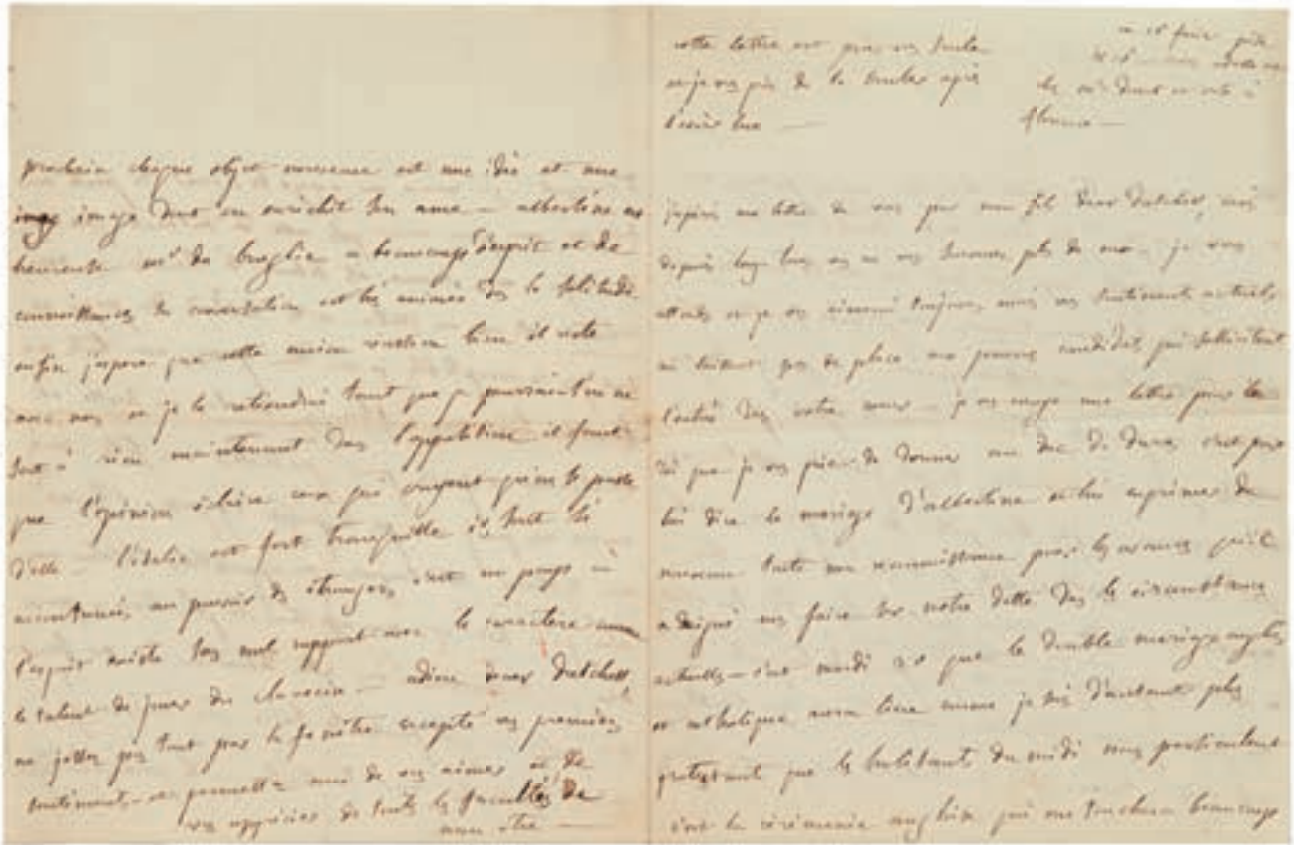 prochain chaque objet nouveau est une idée et une
image dont on enrichit son ame — albertine est
heureuse mr de broglie a beaucoup d'esprit et de
connoissances sa conversation est très animée dans la solitude
enfin j'espère que cette union restera bien il reste
avec nous et je le retiendrai tant que je pourrai
à rien maintenant dans l'opposition il faut
que l'opinion éclaire ceux qui croyent qu'on se passe
d'elle — l'italie est fort tranquille ils sont si
accoutumés au pouvoir des étrangers c'est un pays où
l'esprit existe sans nul rapport avec le caractère comme
le talent de jouer du clavecin — adieu dear dutchess,
ne jettez pas tout par la fenêtre excepté vos premiers
sentiments — et permettez moi de vous aimer et de
vous apprécier de toutes les facultés de
mon être —
cette lettre est pour vous seule
et je vous prie de la bruler après
l'avoir lue —
ce 15 février pise
chez mr Dont en ville à
florence —
j'espérois une lettre de vous par mon fils dear dutchess, mais
depuis long tems vous ne vous souvenez plus de moi — je vous
attends et je vous aimerai toujours mais vos sentiments actuels
ne laissent pas de place aux pauvres candidats qui sollicitent
l'entrée dans votre coeur — je vous envoye une lettre pour le
roi que je vous prie de donner au duc de duras c'est pour
lui dire le mariage d'albertine et lui exprimer de
nouveau toute ma reconnoissance pour les avances qu'il
a daigné nous faire sur notre dette dans les circonstances
actuelles — c'est mardi 20 que le double mariage anglois
et catholique aura lieu mais je suis d'autant plus
protestant que les habitants du midi
c'est la cérémonie angloise qui me touchera beaucoup